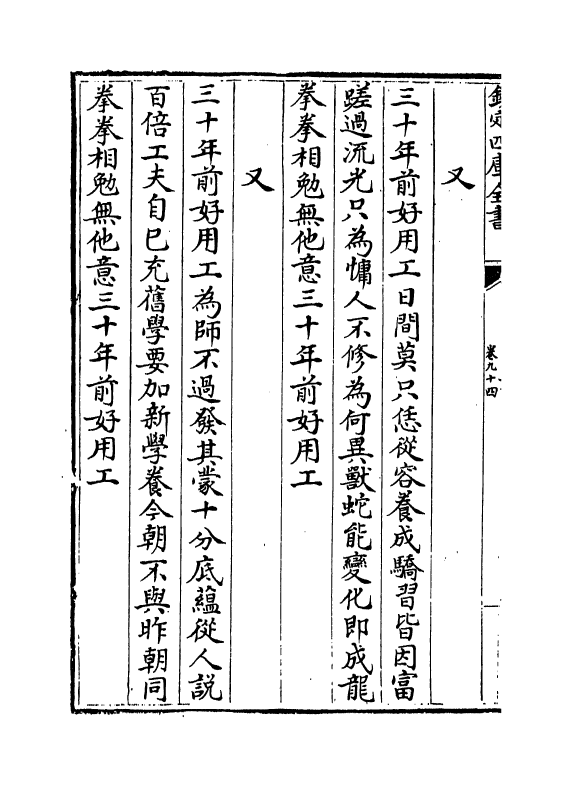 欽定四庫全書
卷九十四
又
三十年前好用工日間莫只恁從容養成驕習皆因富
蹉過流光只為慵人不修為何異獸蛇能變化即成龍
拳拳相勉無他意三十年前好用工
又
三十年前好用工為師不過發其蒙十分底蘊從人説
百倍工夫自已充舊學要加新學養今朝不與昨朝同
拳拳相勉無他意三十年前好用工